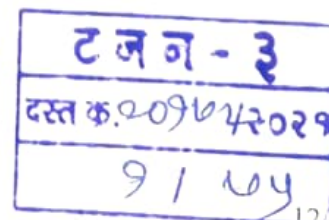 ट ज न - ३
दस्त क्र.२०१७५२०२१
१ / ७५
12